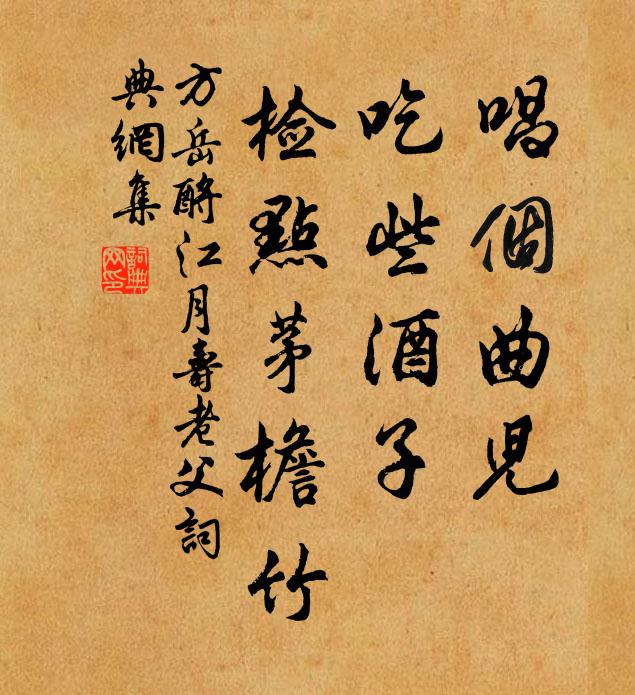 唱個曲児
吃些酒子
检點茅檐竹
方岳酹江月壽老父詞
典網集
詞典網印